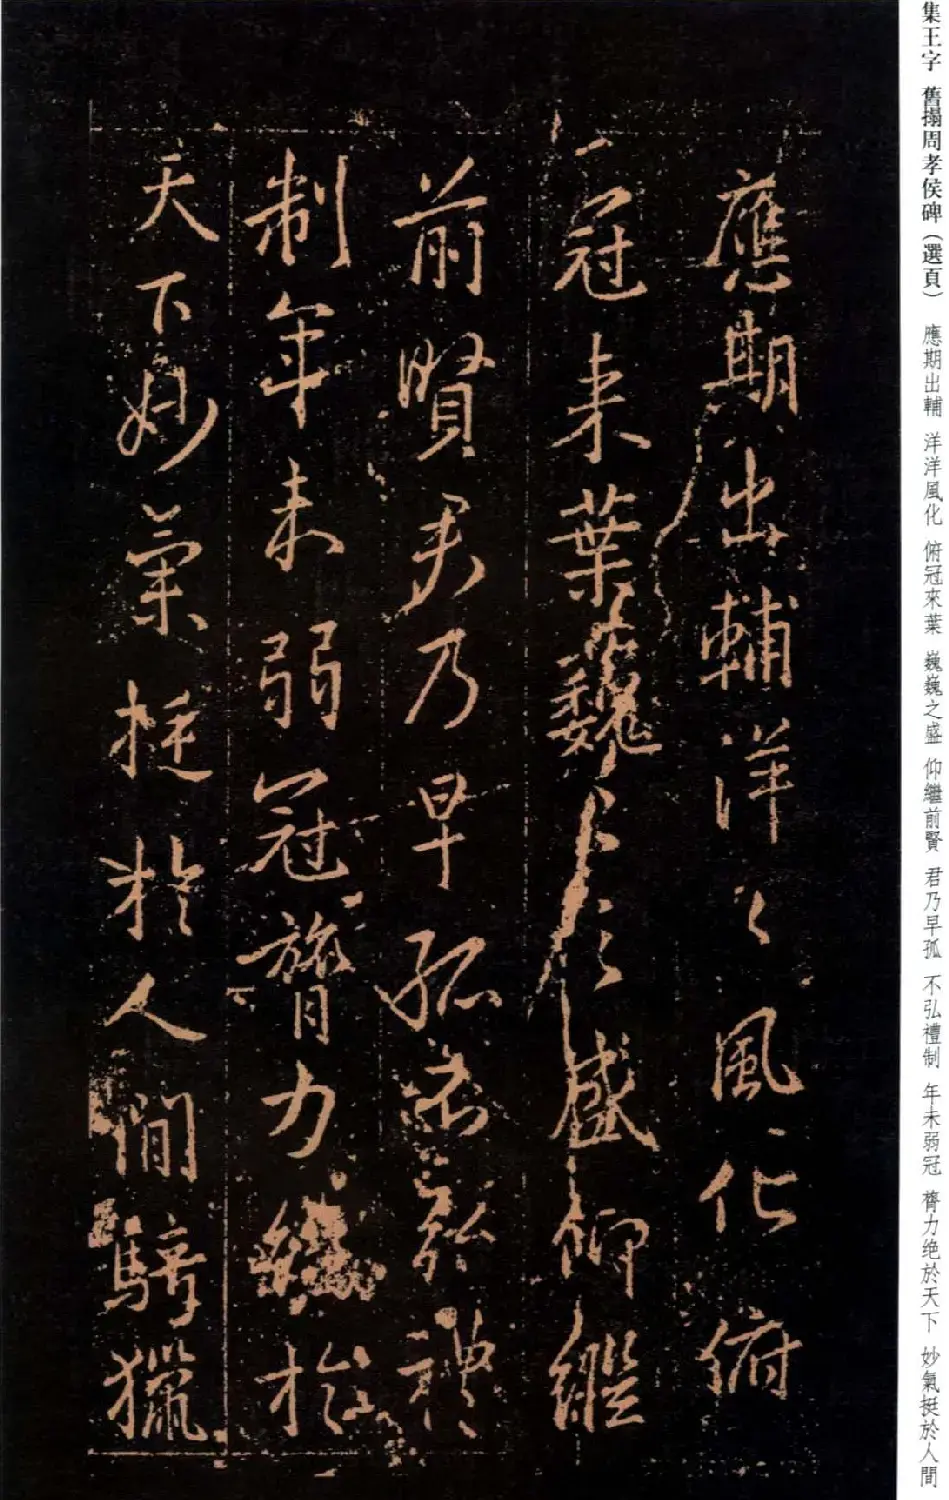 集王字 舊搨周孝侯碑（選頁） 應期出輔 洋洋風化 俯冠來葉 巍巍之盛 仰繼前賢 君乃早孤 不弘禮制 年未弱冠 膂力绝於天下 妙氣挺於人間
應期出輔洋々風化俯
冠来葉巍々之盛仰繼
前賢君乃早孤弘禮
制年未弱冠膂力絶於
天下妙氣挺於人間騎獵